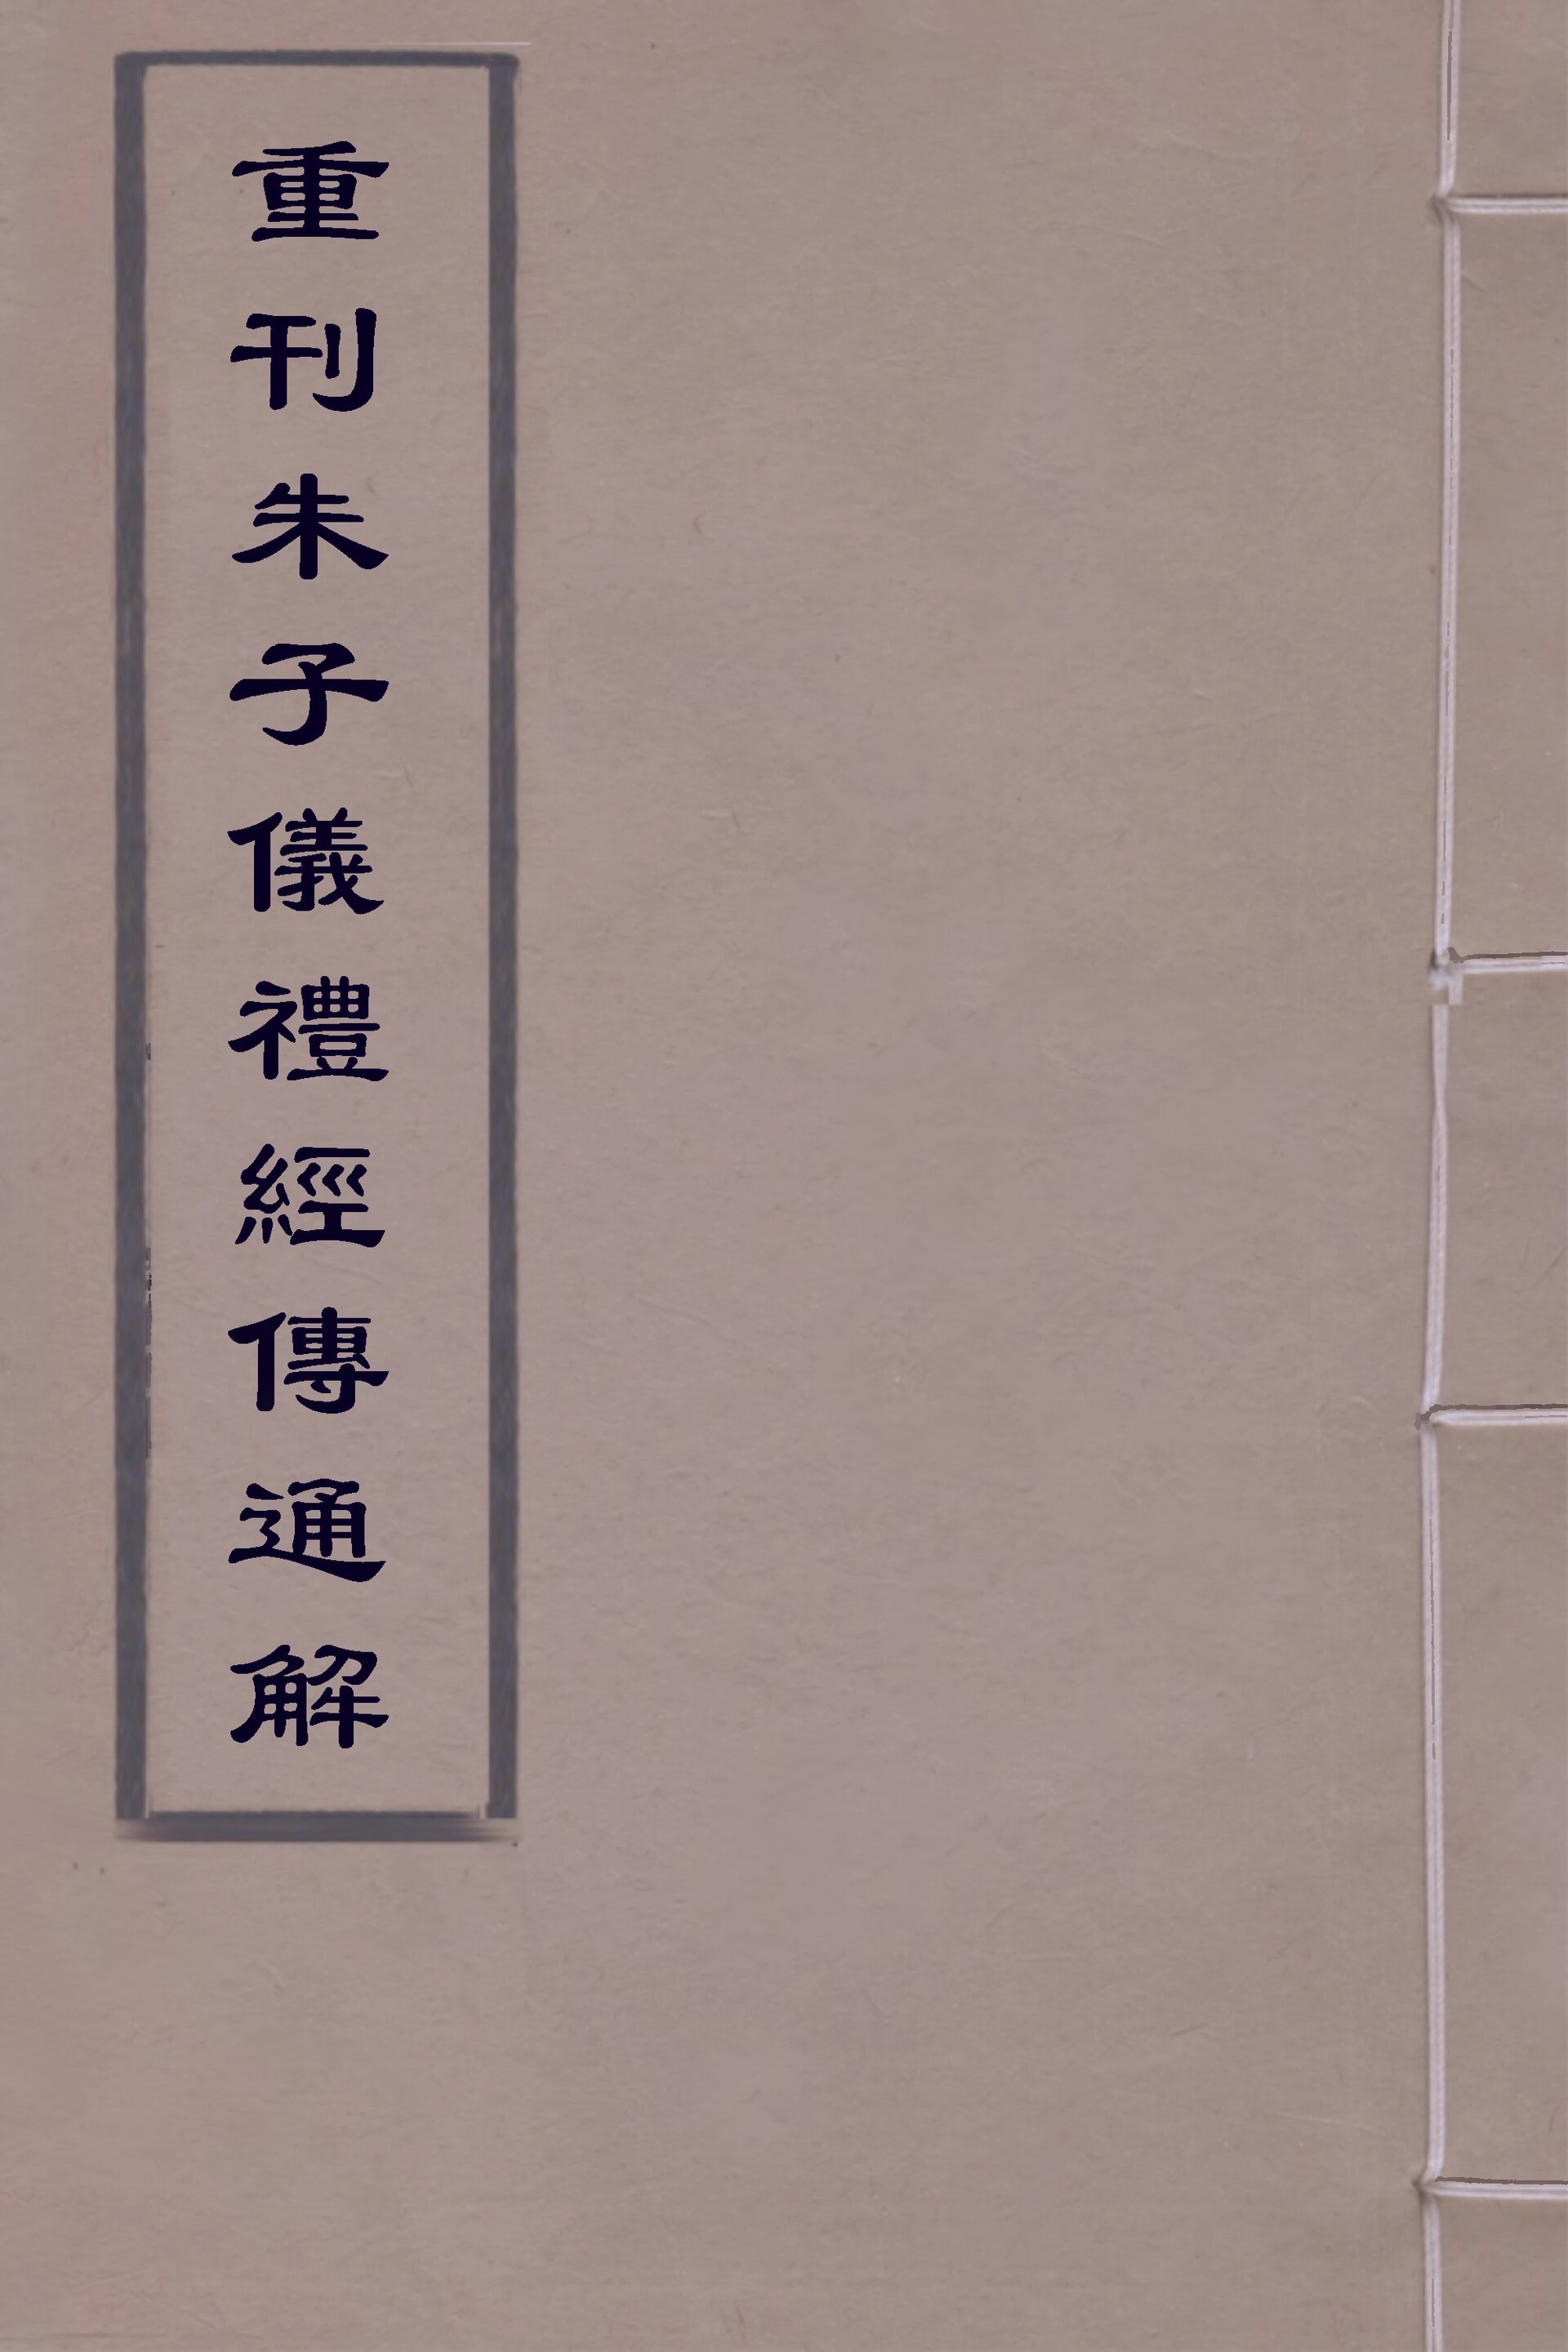 重刊朱子儀禮經傳通解